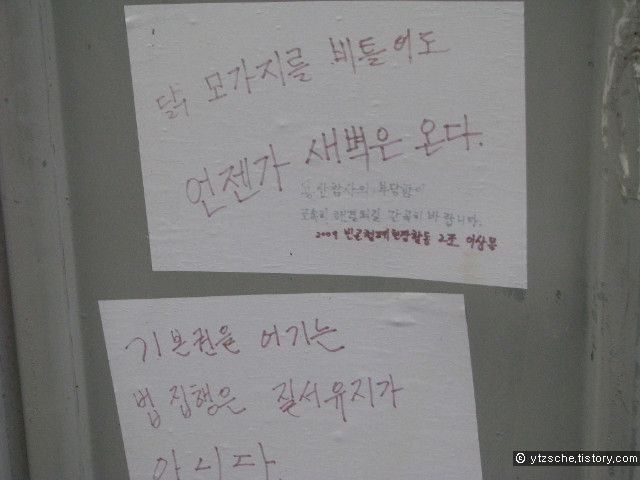 닭 모가지를 비틀어도
언젠가 새벽은 온다.
용산참사의 부당함이
조속히 해결되길 간곡히 바랍니다.
2009 빈곤철폐현장활동 2조
기본권을 어기는
법 집행은 질서유지가
아니다.
© ytzsche.tistory.com